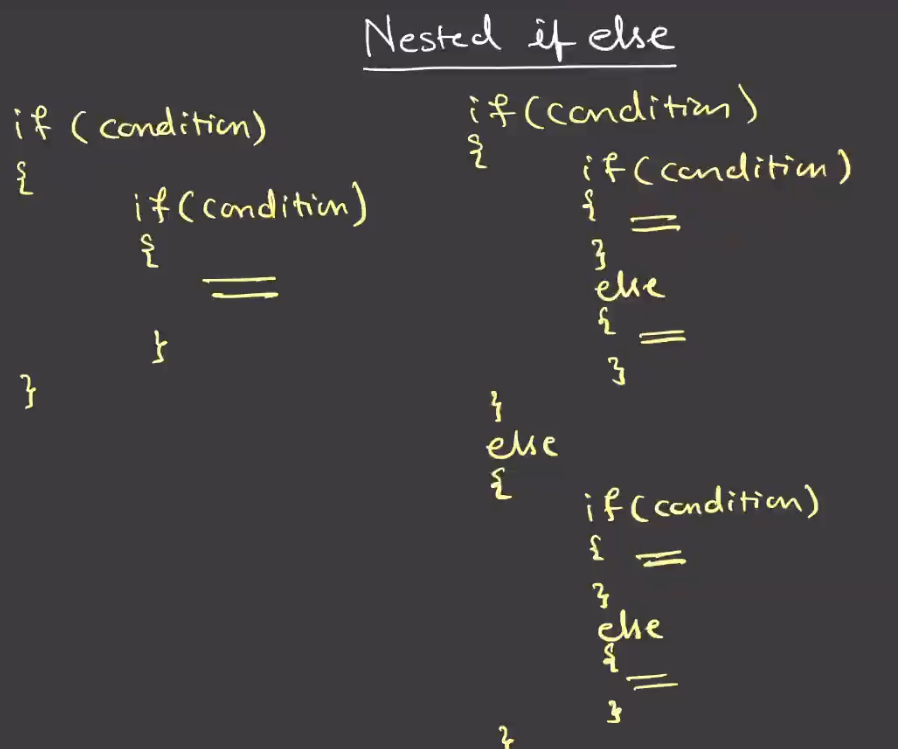 Nested if else
if (condition)
{
if (condition)
{
}
}
if (condition)
{
if (condition)
{
}
else
{
}
}
else
{
if (condition)
{
}
else
{
}
}